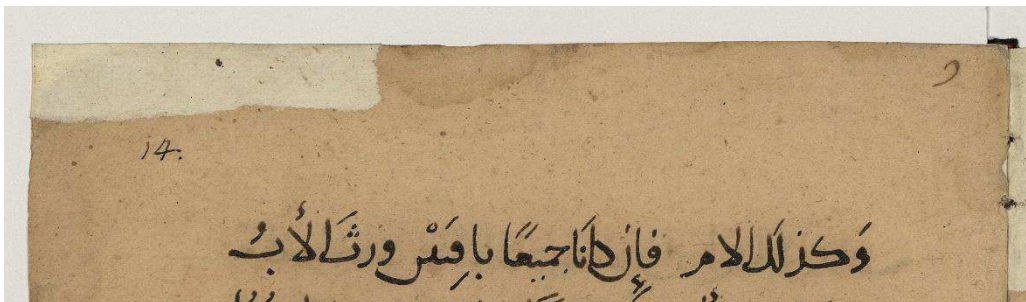 14.
وَكذلك الام فإن كانَا جميعًا باقِيَيْن ورثَ الأبُ